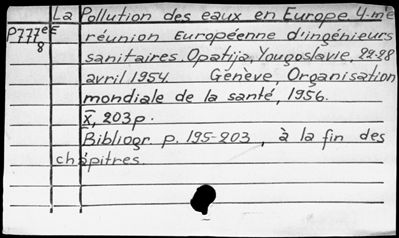 La Pollution des eaux en Europe. 4-me
P777eE réunion Européenne d'ingénieurs
8 sanitaires. Opatija, Yougoslavie, 22-28
avril 1954. Genève, Organisation
mondiale de la santé, 1956.
x, 203p.
Bibliogr. p. 195-203, à la fin des
chapitres.